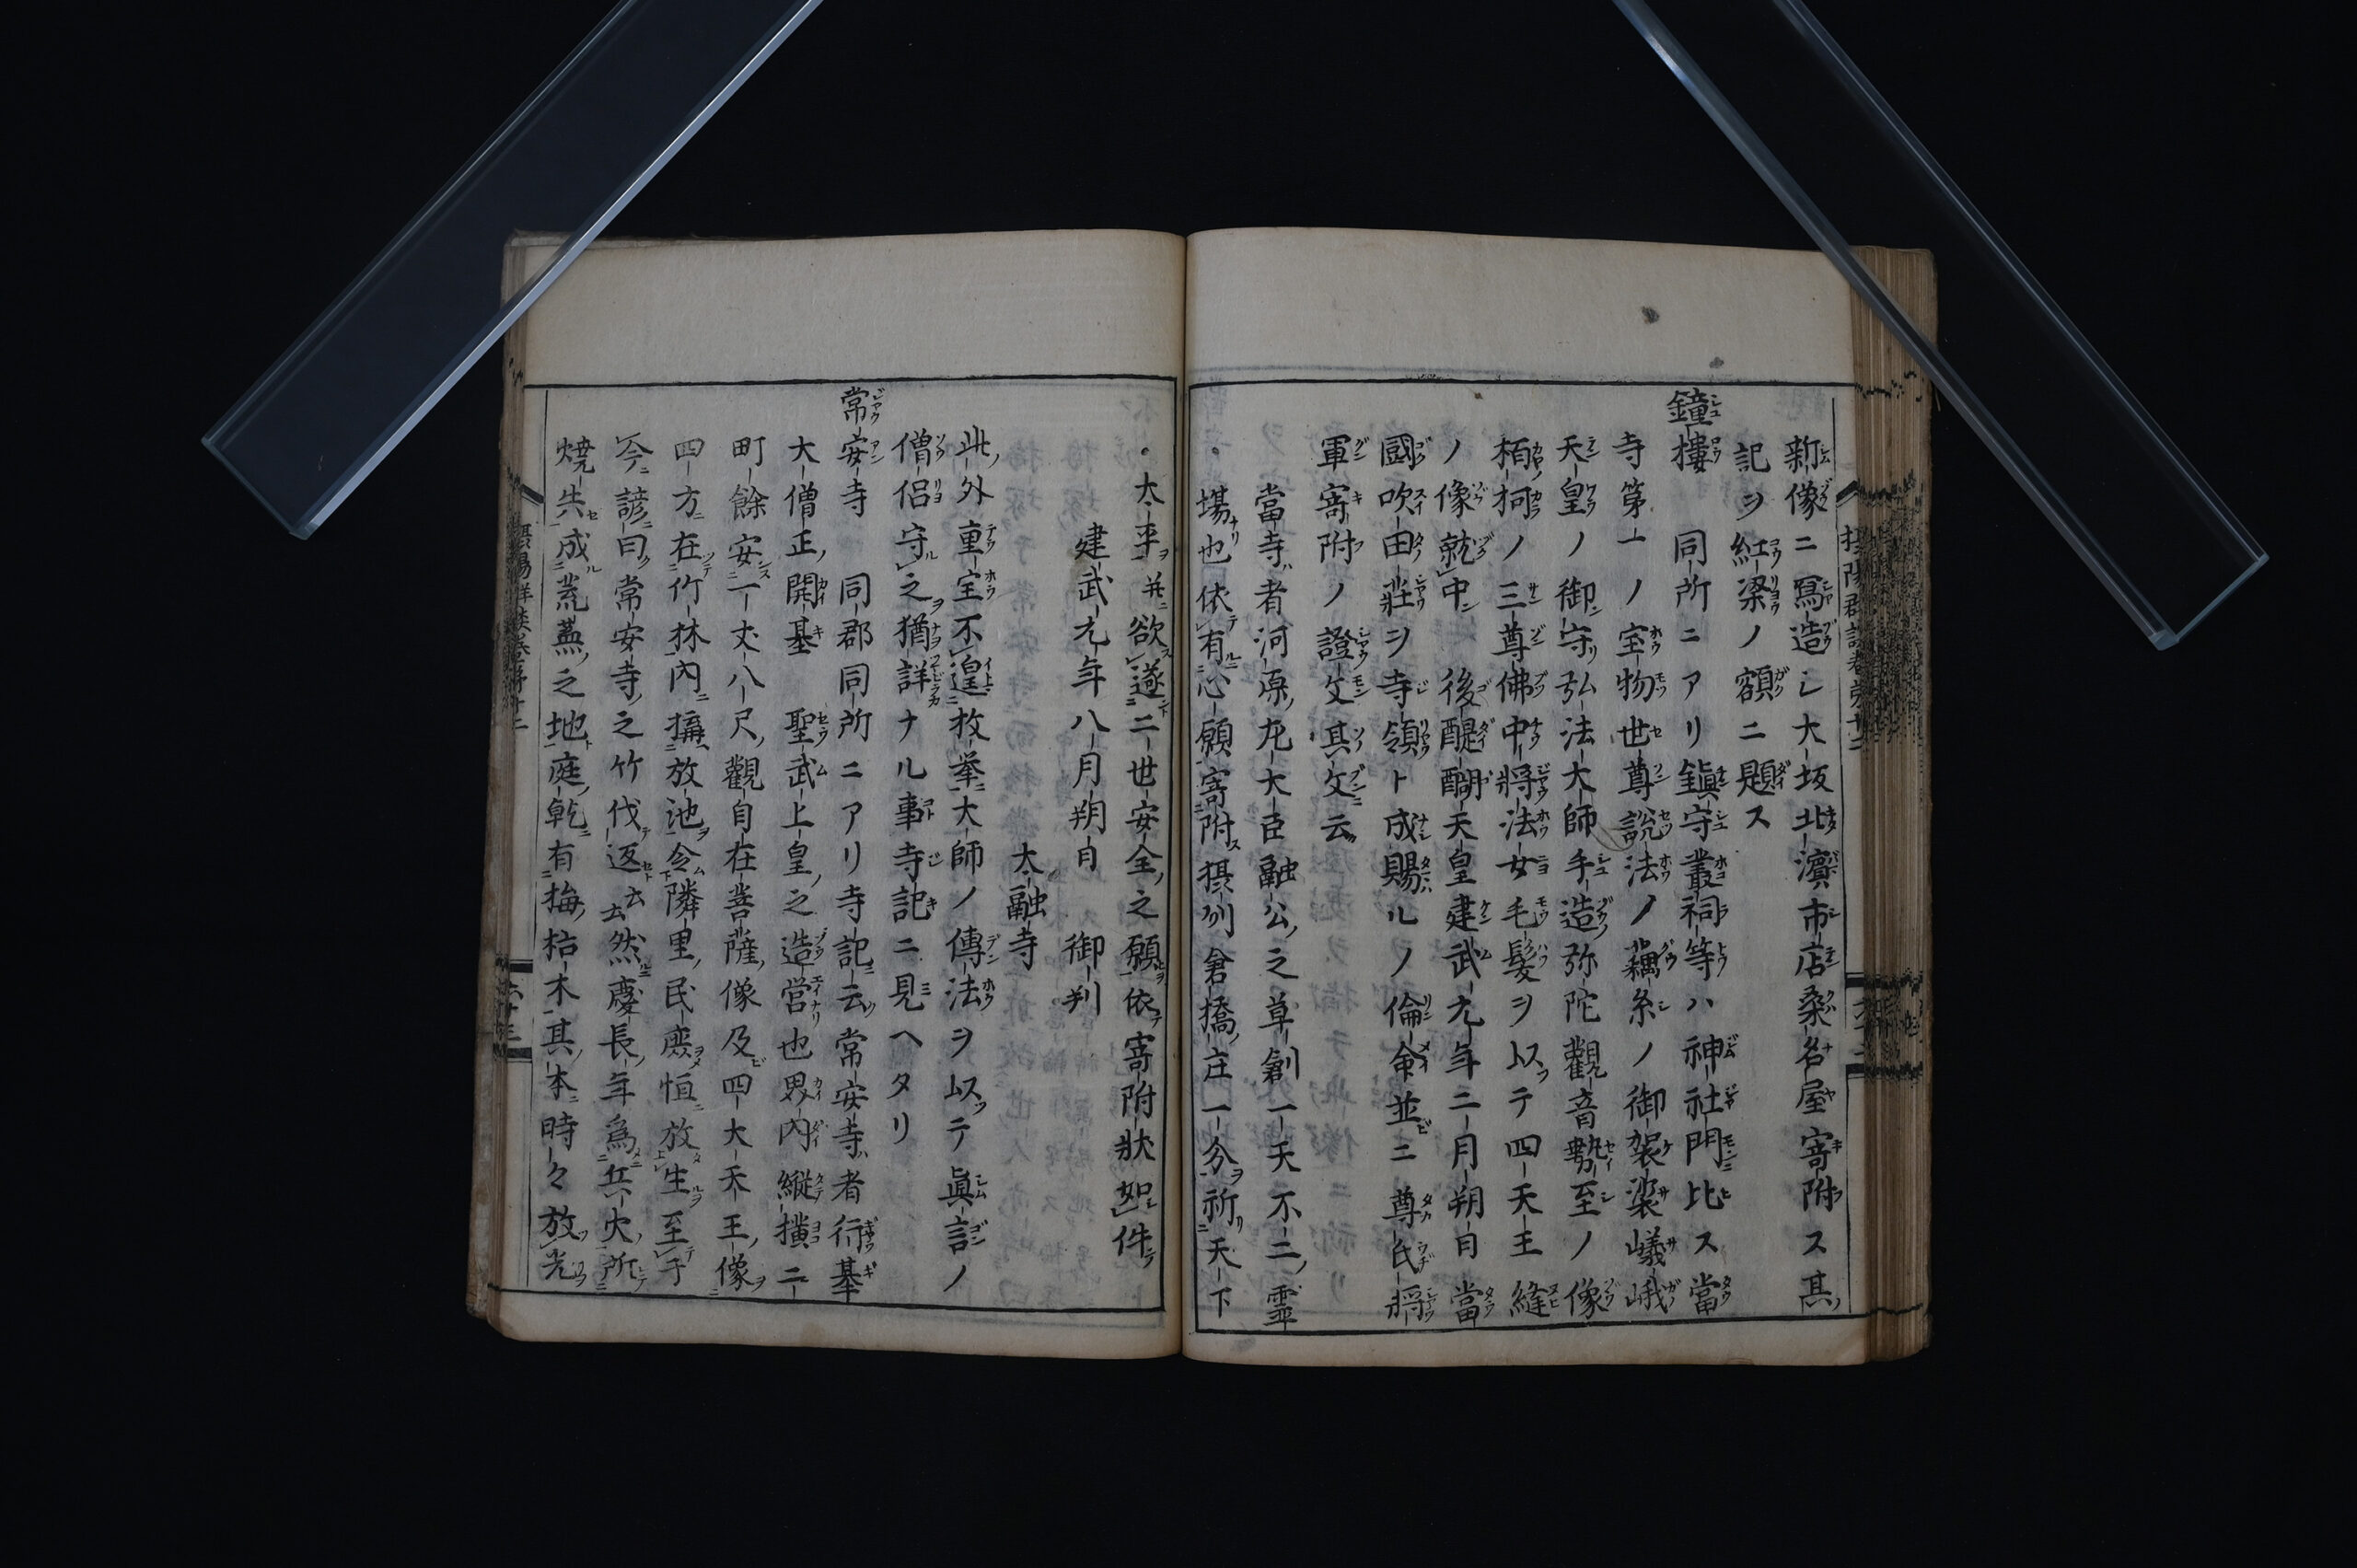 新像ニ寫造シ大坂北濱市店桑名屋寄附ス其
記ヲ紅梁ノ額ニ題ス
鐘樓 同所ニアリ鎮守叢祠等ハ神社門ニ比ス當
寺第一ノ宝物世尊說法ノ藕糸ノ御袈裟嵯峨
天皇ノ御守弘法大師手造弥陀觀音勢至ノ像
栢柯ノ三尊佛中將法女毛髮ヲ以テ四天王縫
ノ像就中後醍醐天皇建武元年二月朔日當
國吹田莊ヲ寺領ト成賜ルノ倫命並ニ尊氏將
軍寄附ノ證文其文ニ云
當寺者河原左大臣融公之草創一天不二霊
塲也依有心願寄附摂州倉橋庄一分祈天下
太平并欲遂二世安全之願依寄附狀如件
建武元年八月朔日 御判
太融寺
此外重宝不遑枚挙大師ノ傳法ヲ以テ眞言ノ
僧侶守之猶詳ナル事寺記ニ見ヘタリ
常安寺 同郡同所ニアリ寺記云常安寺者行基
大僧正開基 聖武上皇之造営也界内縦横二
町餘安一丈八尺觀自在菩薩像及四大天王像
四方在竹林内搆放池令隣里民庶恒放生至于
今諺曰常安寺之竹伐返云云然慶長年為兵火所
燒失成荒蕪之地庭乾有梅枯木其本時々放光